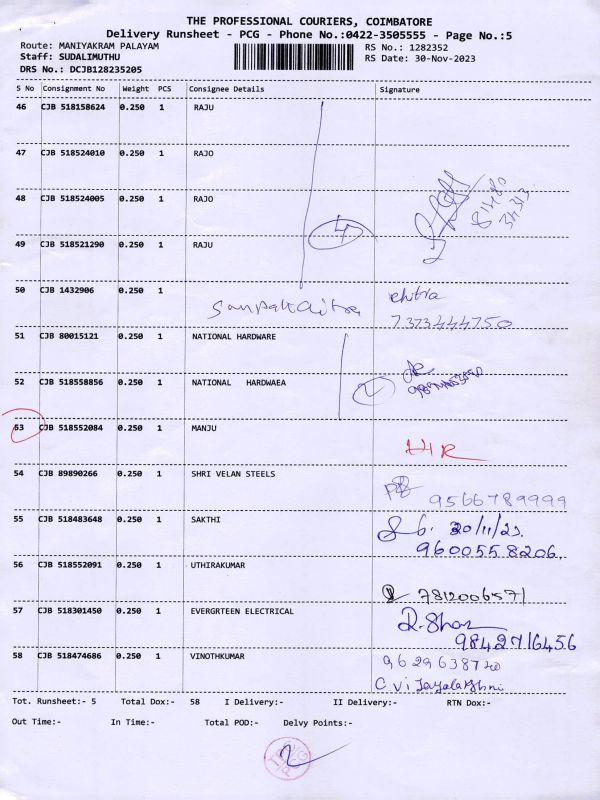 THE PROFESSIONAL COURIERS, COIMBATORE
Delivery Runsheet - PCG - Phone No.:0422-3505555 - Page No.:5
Route: MANIYAKRAM PALAYAM RS No.: 1282352
Staff: SUDALIMUTHU RS Date: 30-Nov-2023
DRS No.: DCJB128235205
S No Consignment No Weight PCS Consignee Details Signature
46 CJB 518158624 0.250 1 RAJU
47 CJB 518524010 0.250 1 RAJO
48 CJB 518524005 0.250 1 RAJO
4
49 CJB 518521290 0.250 1 RAJU
50 CJB 1432906 0.250 1 chitra
7373444750
51 CJB 80015121 0.250 1 NATIONAL HARDWARE
52 CJB 518558856 0.250 1 NATIONAL HARDWAEA
2
53 CJB 518552084 0.250 1 MANJU
54 CJB 89890266 0.250 1 SHRI VELAN STEELS
9566789999
55 CJB 518483648 0.250 1 SAKTHI
9600558206
56 CJB 518552091 0.250 1 UTHIRAKUMAR
7812006571
57 CJB 518301450 0.250 1 EVERGRTEEN ELECTRICAL
9842716456
58 CJB 518474686 0.250 1 VINOTHKUMAR 9629638740
C Vijayalakshmi
Tot. Runsheet:- 5 Total Dox:- 58 I Delivery:- II Delivery:- RTN Dox:-
Out Time:- In Time:- Total POD:- Delvy Points:-